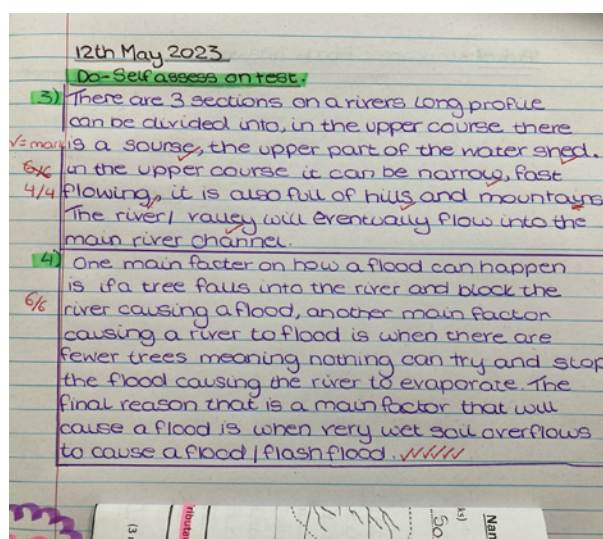 12th May 2023
Do-Self assess on test.
3) There are 3 sections on a rivers long profile
can be divided into, in the upper course there
√=mark is a sourse, the upper part of the water shed.
6/6 in the upper course it can be narrow, fast
4/4 flowing, it is also full of hills and mountains
The river/ valley will eventually flow into the
main river channel.
4) One main facter on how a flood can happen
is if a tree falls into the river and block the
6/6 river causing a flood, another main factor
causing a river to flood is when there are
fewer trees meaning nothing can try and stop
the flood causing the river to evaporate. The
final reason that is a main factor that will
cause a flood is when very wet soil overflows
to cause a flood / flash flood.
(3
ributa
So
ks)
Nan